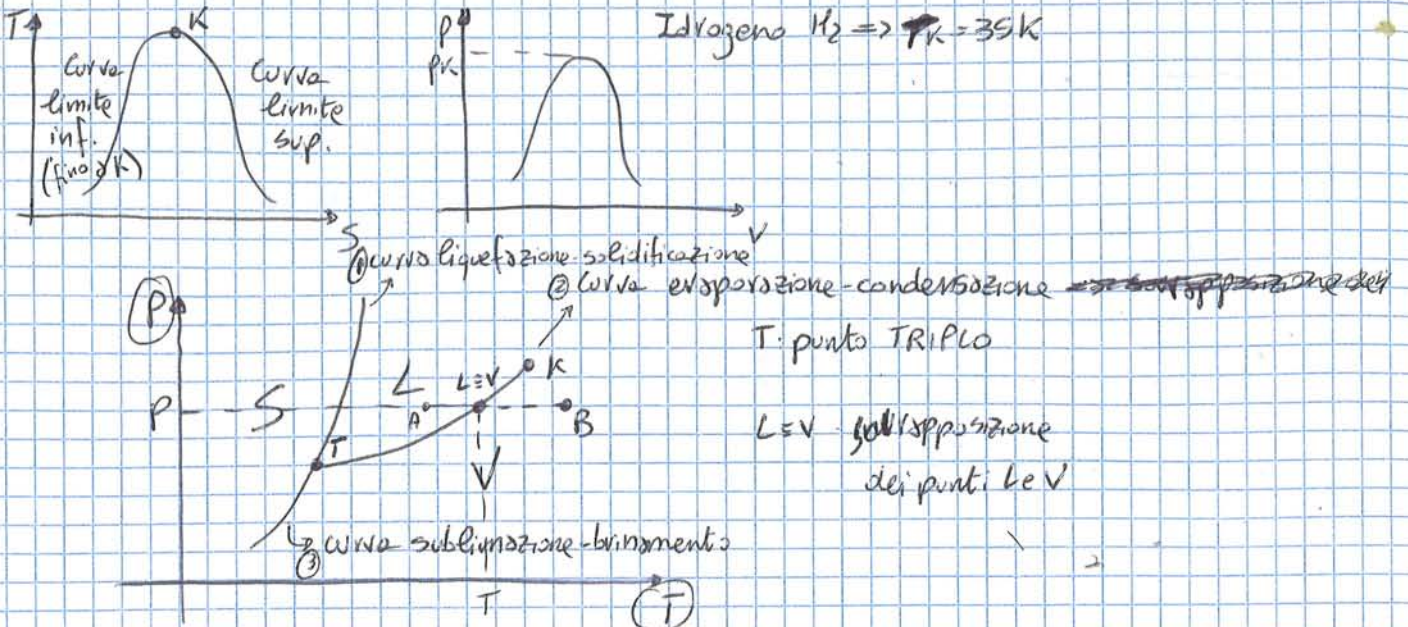 T
K
Curva
limite
inf.
(fino a K)
Curva
limite
sup.
S
P
PK
V
Idrogeno H2 => TK = 35K
① curva liquefazione-solidificazione
② Curva evaporazione-condensazione
T: punto TRIPLO
P
P
S
L
A
L≡V
K
B
T
V
L≡V sovrapposizione
dei punti L e V
③ curva sublimazione-brinamento
T
T